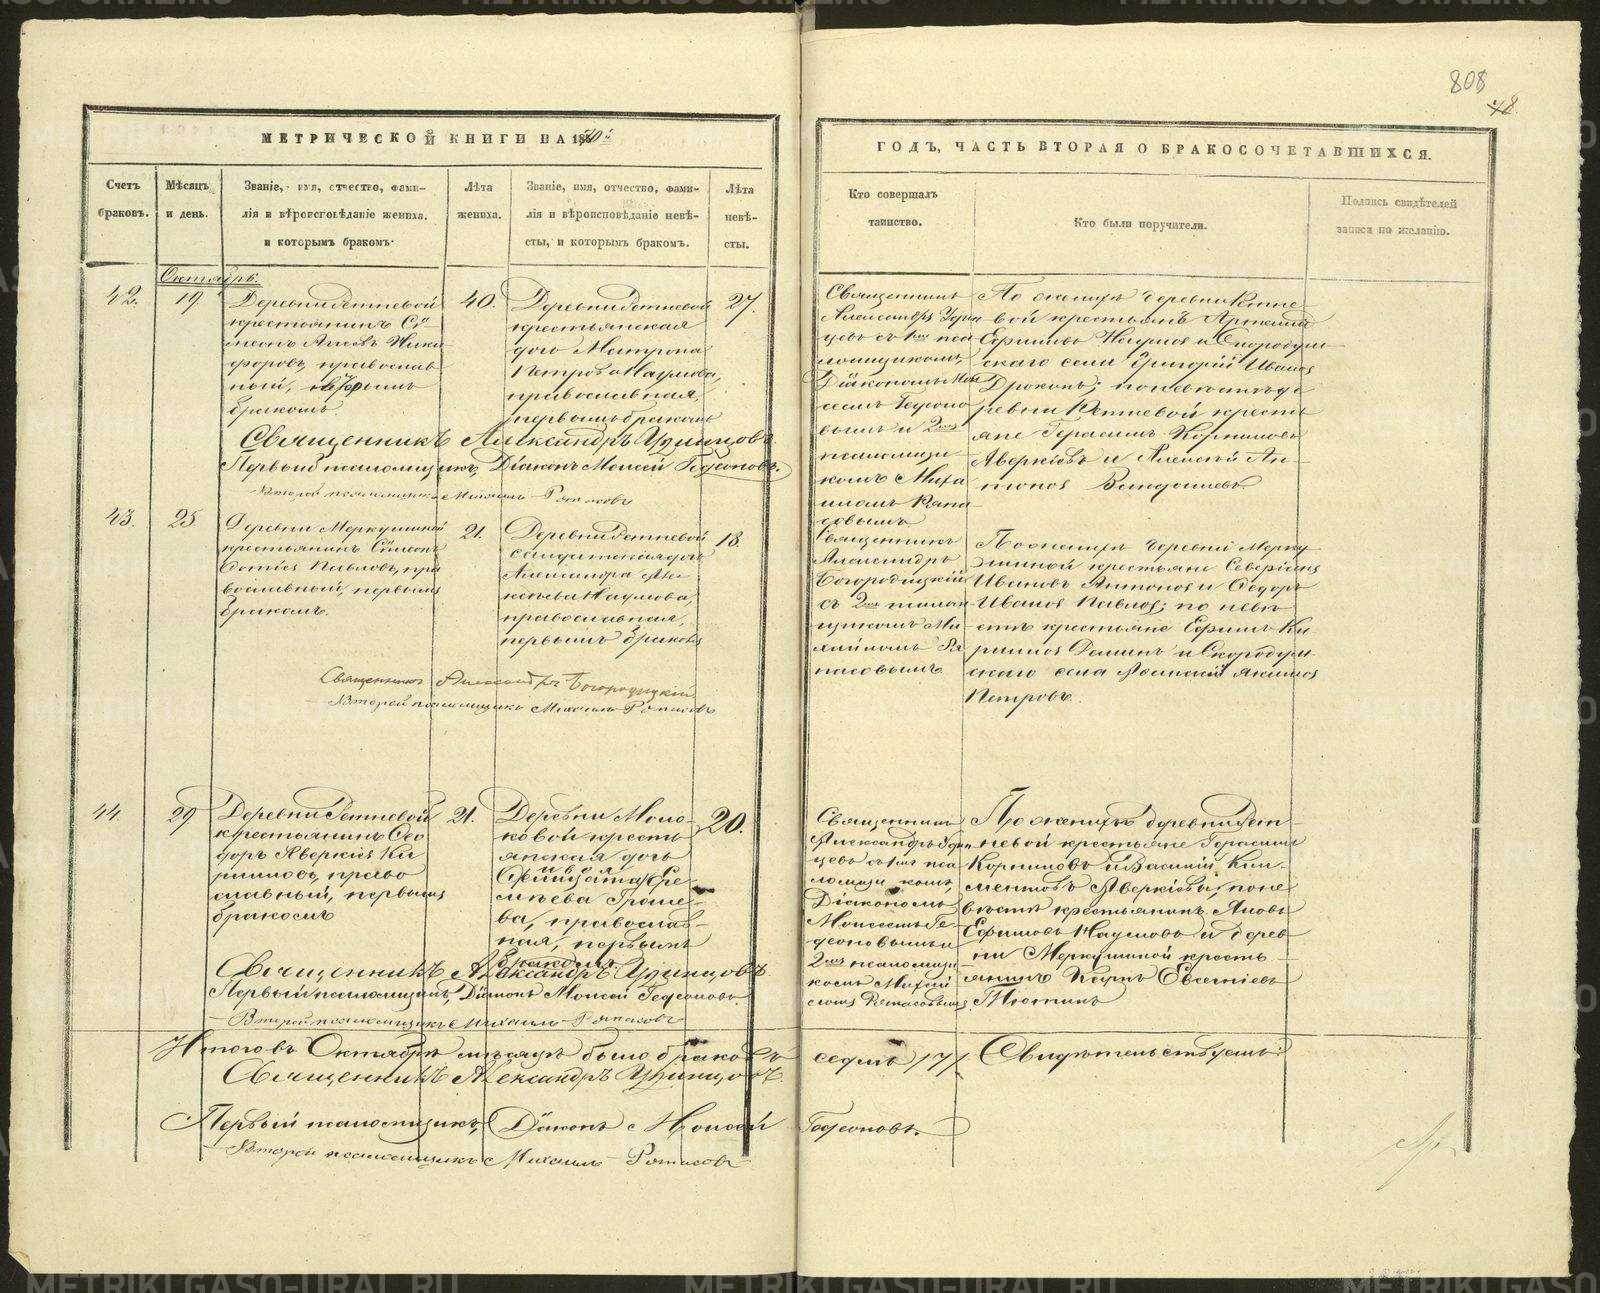 808
78
МЕТРИЧЕСКОЙ КНИГИ НА 1870й
ГОДЪ, ЧАСТЬ ВТОРАЯ О БРАКОСОЧЕТАВШИХСЯ.
Счетъ браковъ.
Мѣсяцъ и день.
Званіе, имя, отчество, фами-
лія и вѣроисповѣданіе жениха.
и которымъ бракомъ.
Лѣта жениха.
Званіе, имя, отчество, фами-
лія и вѣроисповѣданіе невѣ-
сты, и которымъ бракомъ.
Лѣта невѣ-
сты.
Кто совершалъ
таинство.
Кто были поручители.
Подпись свидѣтелей
записи по желанію.
Октябрь.
42.
19.
Деревни Ретневой
крестьянинъ Си-
меонъ
форовъ, православ
ный,
бракомъ.
40.
Деревни Ретневой
крестьянская
дочь Матрона
Петрова Наумова,
православная,
первымъ бракомъ
27.
Священникъ
Александръ Удин
цовъ съ 1мъ пса
ломщикомъ,
Діакономъ Мои
сеемъ Гедеоно
вымъ и 2мъ
псаломщи-
комъ Миха
иломъ
По женихѣ деревни Ретне-
вой крестьянъ Артемій
Ефимовъ Наумовъ и Скородум-
скаго села Григорій Ивановъ
по невѣстѣ де
ревни Ретневой кресть
яне Герасимъ Корниловъ
Аверкіевъ и Алексѣй Ан-
Священникъ Александръ Удинцовъ
Первый псаломщикъ, Діаконъ Моисей Гедеоновъ.
Второй псаломщикъ Михаилъ
43.
25
Деревни Меркушиной
крестьянинъ Симеонъ
Павловъ, пра
вославный, первымъ
бракомъ.
21.
Деревни Ретневой
солдатская дочь
Александра Але-
ксѣева Наумова,
православная,
первымъ бракомъ
18.
Священникъ
Александръ
Богородицкій
съ 2мъ псалом
щикомъ Ми
хаиломъ
По женихѣ деревни Мерку-
шиной крестьяне Северіанъ
Ивановъ Антоновъ и Ѳедоръ
Ивановъ Павловъ; по невѣ
стѣ крестьяне Ефимъ Ки
риловъ и Скородум
скаго села Акимовъ
Петровъ.
Священникъ Александръ Богородицкій
Второй псаломщикъ Михаилъ
44.
29
Деревни Ретневой
крестьянинъ Ѳео
доръ Аверкіевъ Ки
риловъ, право
славный, первымъ
бракомъ
21.
Деревни Моло-
ковой кресть
янская дочь
ва, православ-
ная, первымъ
бракомъ.
20.
Священникъ
Александръ Удин
цовъ съ 1мъ пса
ломщикомъ,
Діакономъ
Моисеемъ Ге-
деоновымъ и
2мъ псаломщи
комъ Михаи
ломъ
По женихѣ деревни Рет-
невой крестьяне Герасимъ
Корниловъ и Василій Кли-
ментовъ Аверкіевы, по не
вѣстѣ крестьянинъ Яковъ
Ефимовъ Наумовъ и дерев-
ни Меркушиной кресть
янинъ Карпъ
Священникъ Александръ Удинцовъ
Первый псаломщикъ, Діаконъ Моисей Гедеоновъ
Второй псаломщикъ Михаилъ
Итого въ Октябрѣ мѣсяцѣ было браковъ седмь /7/ Свидѣтельствуемъ:
Священникъ Александръ Удинцовъ
Первый псаломщикъ, Діаконъ Моисей Гедеоновъ.
Второй псаломщикъ Михаилъ
METRIKI.GASO-URAL.RU